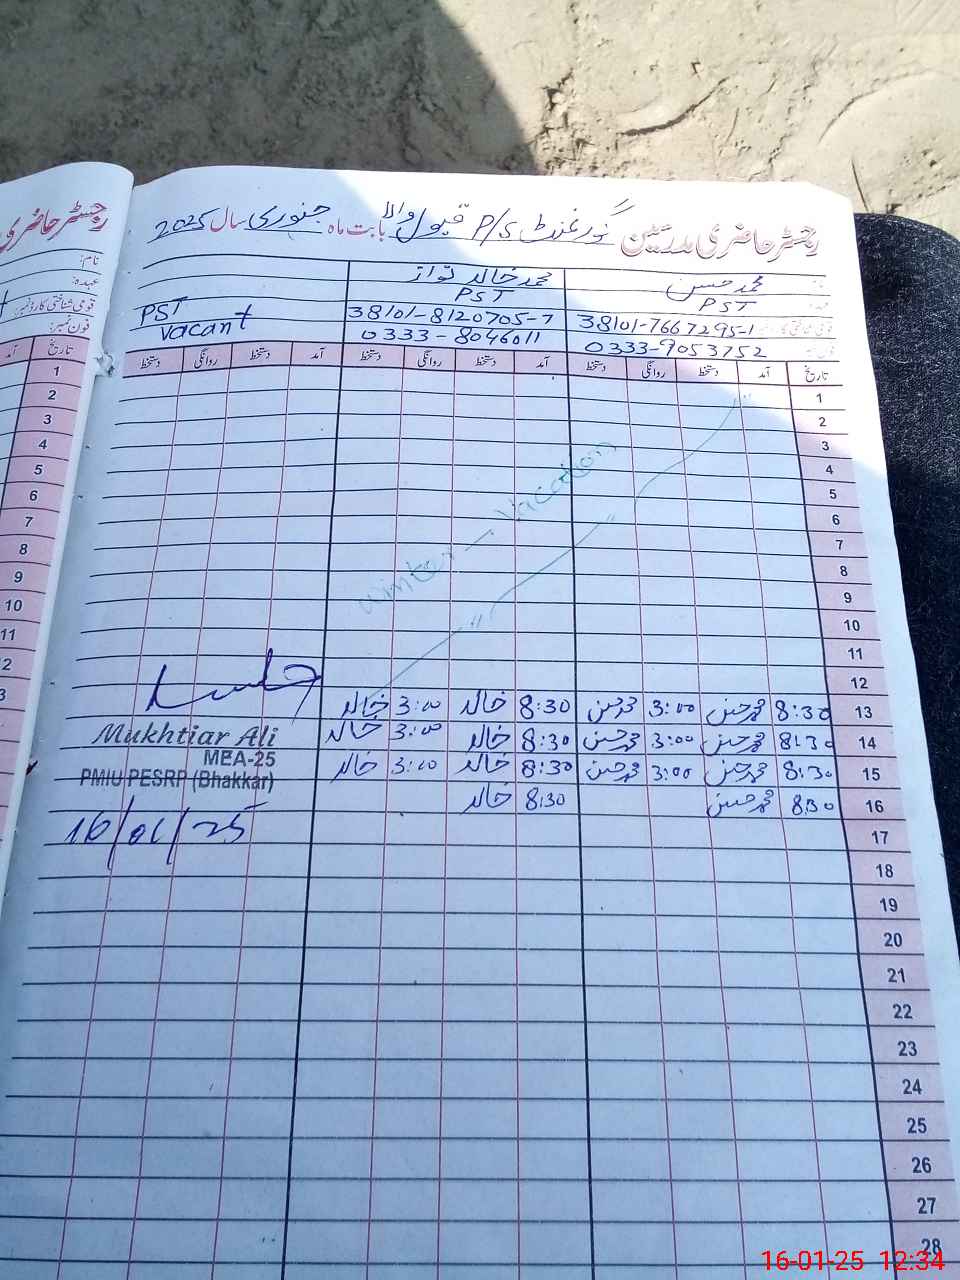 رجسٹر حاضری مدرسین گورنمنٹ P/S قبول والا بابت ماہ جنوری سال 2025
رجسٹر حاضری
نام:
عہدہ:
قومی شناختی کارڈ نمبر:
فون نمبر:
محمد حسن محمد خالد نواز
PST PST PST
38101-7667295-1 38101-8120705-7 vacant
0333-9053752 0333-8046011
تاریخ آمد دستخط روانگی دستخط آمد دستخط روانگی دستخط آمد دستخط روانگی دستخط
تاریخ آمد
1 1
2 2
3 3
4 4
5 5
6 6
7 7
8 8
9 9
10 10
11 11
12 2
Winter Vacation
13 8:30 محمد حسن 3:00 محمد حسن 8:30 خالد 3:00 خالد 3
14 8:30 محمد حسن 3:00 محمد حسن 8:30 خالد 3:00 خالد
15 8:30 محمد حسن 3:00 محمد حسن 8:30 خالد 3:00 خالد
16 8:30 محمد حسن 8:30 خالد
Mukhtiar Ali
MEA-25
PMIU PESRP (Bhakkar)
16/01/25
17
18
19
20
21
22
23
24
25
26
27
28
16-01-25 12:34